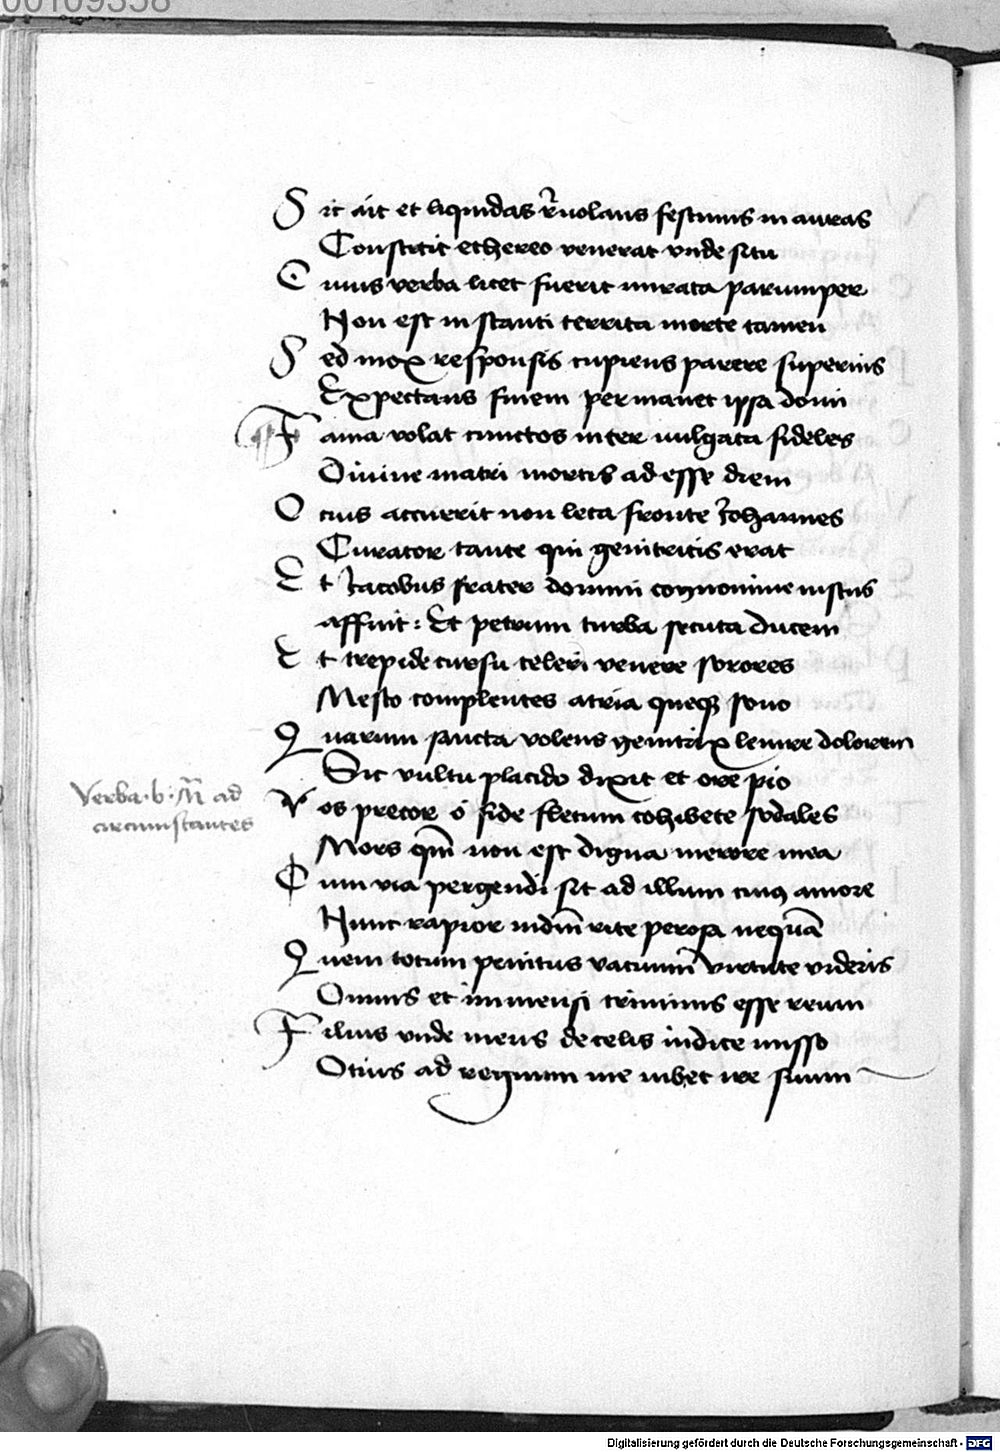 00109358
Sic ait et liquidas r̄uolans festinus in auras
Constitit ethereo venerat vnde situ
Cuius verba licet fuerit mirata parumper
Non est instanti territa morte tamen
Sed mox responsis cupiens parere supernis
Expectans finem permanet ipsa domi
Fama volat cunctos inter uulgata fideles
Diuine matri mortis adesse diem
Ocius accuerit non leta fronte Iohannes
Curator tante qui genitricis erat
Et Iacobus frater domini cognomine iustus
affuit: Et petrum turba secuta ducem
Et trepide cursu celeri venere sorores
Mesto complentes atria queqꝫ sono
Quarum sancta volens genitrix lenire dolorem
Sic vultu placido dixit et ore pio
Verba .b. M̄ ad
circumstantes
Vos precor o fide fletum cohibete sodales
Mors qm̄ non est digna merore mea
Cum via pergendi sit ad illum cuiꝰ amore
Nunc rapior mdm̄ rite perosa nequā
Quem totum penitus vacuum virtute videris
Omnis et immensi criminis esse reum
Filius vnde meus de celis indice misso
Otius ad regnum me iubet ire suum
Digitalisierung gefördert durch die Deutsche Forschungsgemeinschaft - DFG